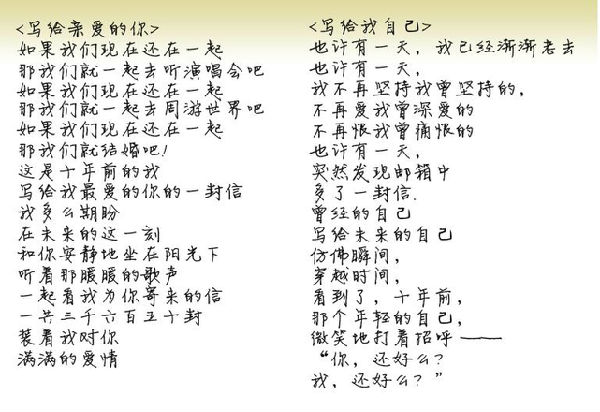 <写给亲爱的你>
如果我们现在还在一起
那我们就一起去听演唱会吧
如果我们现在还在一起
那我们就一起去周游世界吧
如果我们现在还在一起
那我们就结婚吧！
这是十年前的我
写给我最爱的你的一封信
我多么期盼
在未来的这一刻
和你安静地坐在阳光下
听着那暖暖的歌声
一起看我为你寄来的信
一共三千六百五十封
装着我对你
满满的爱情
<写给我自己>
也许有一天，我已经渐渐老去
也许有一天，
我不再坚持我曾坚持的，
不再爱我曾深爱的
不再恨我曾痛恨的
也许有一天，
突然发现邮箱中
多了一封信.
曾经的自己
写给未来的自己
仿佛瞬间，
穿越时间，
看到了，十年前，
那个年轻的自己，
微笑地打着招呼——
“你，还好么？
我，还好么？”